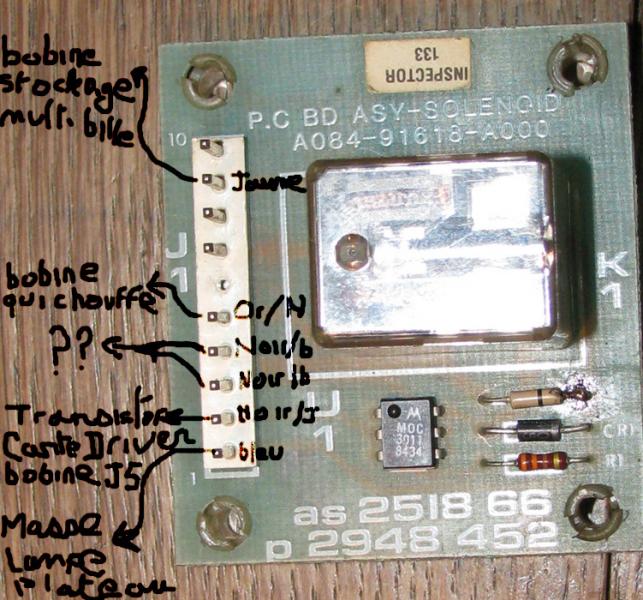 bobine
stockage
multibille
INSPECTOR
133
P.C BD ASY-SOLENOID
A084-91618-A000
10
Jaune
J
1
K
1
bobine
qui chauffe
Or/N
??
Noir/b
Noir/b
Transistors
Noir/J
Carte Driver
bleu
bobine J5
1
Masse
Lampe
Plateau
U
1
M
MOC
3011
8434
CR1
R1
as 2518 66
p 2948 452